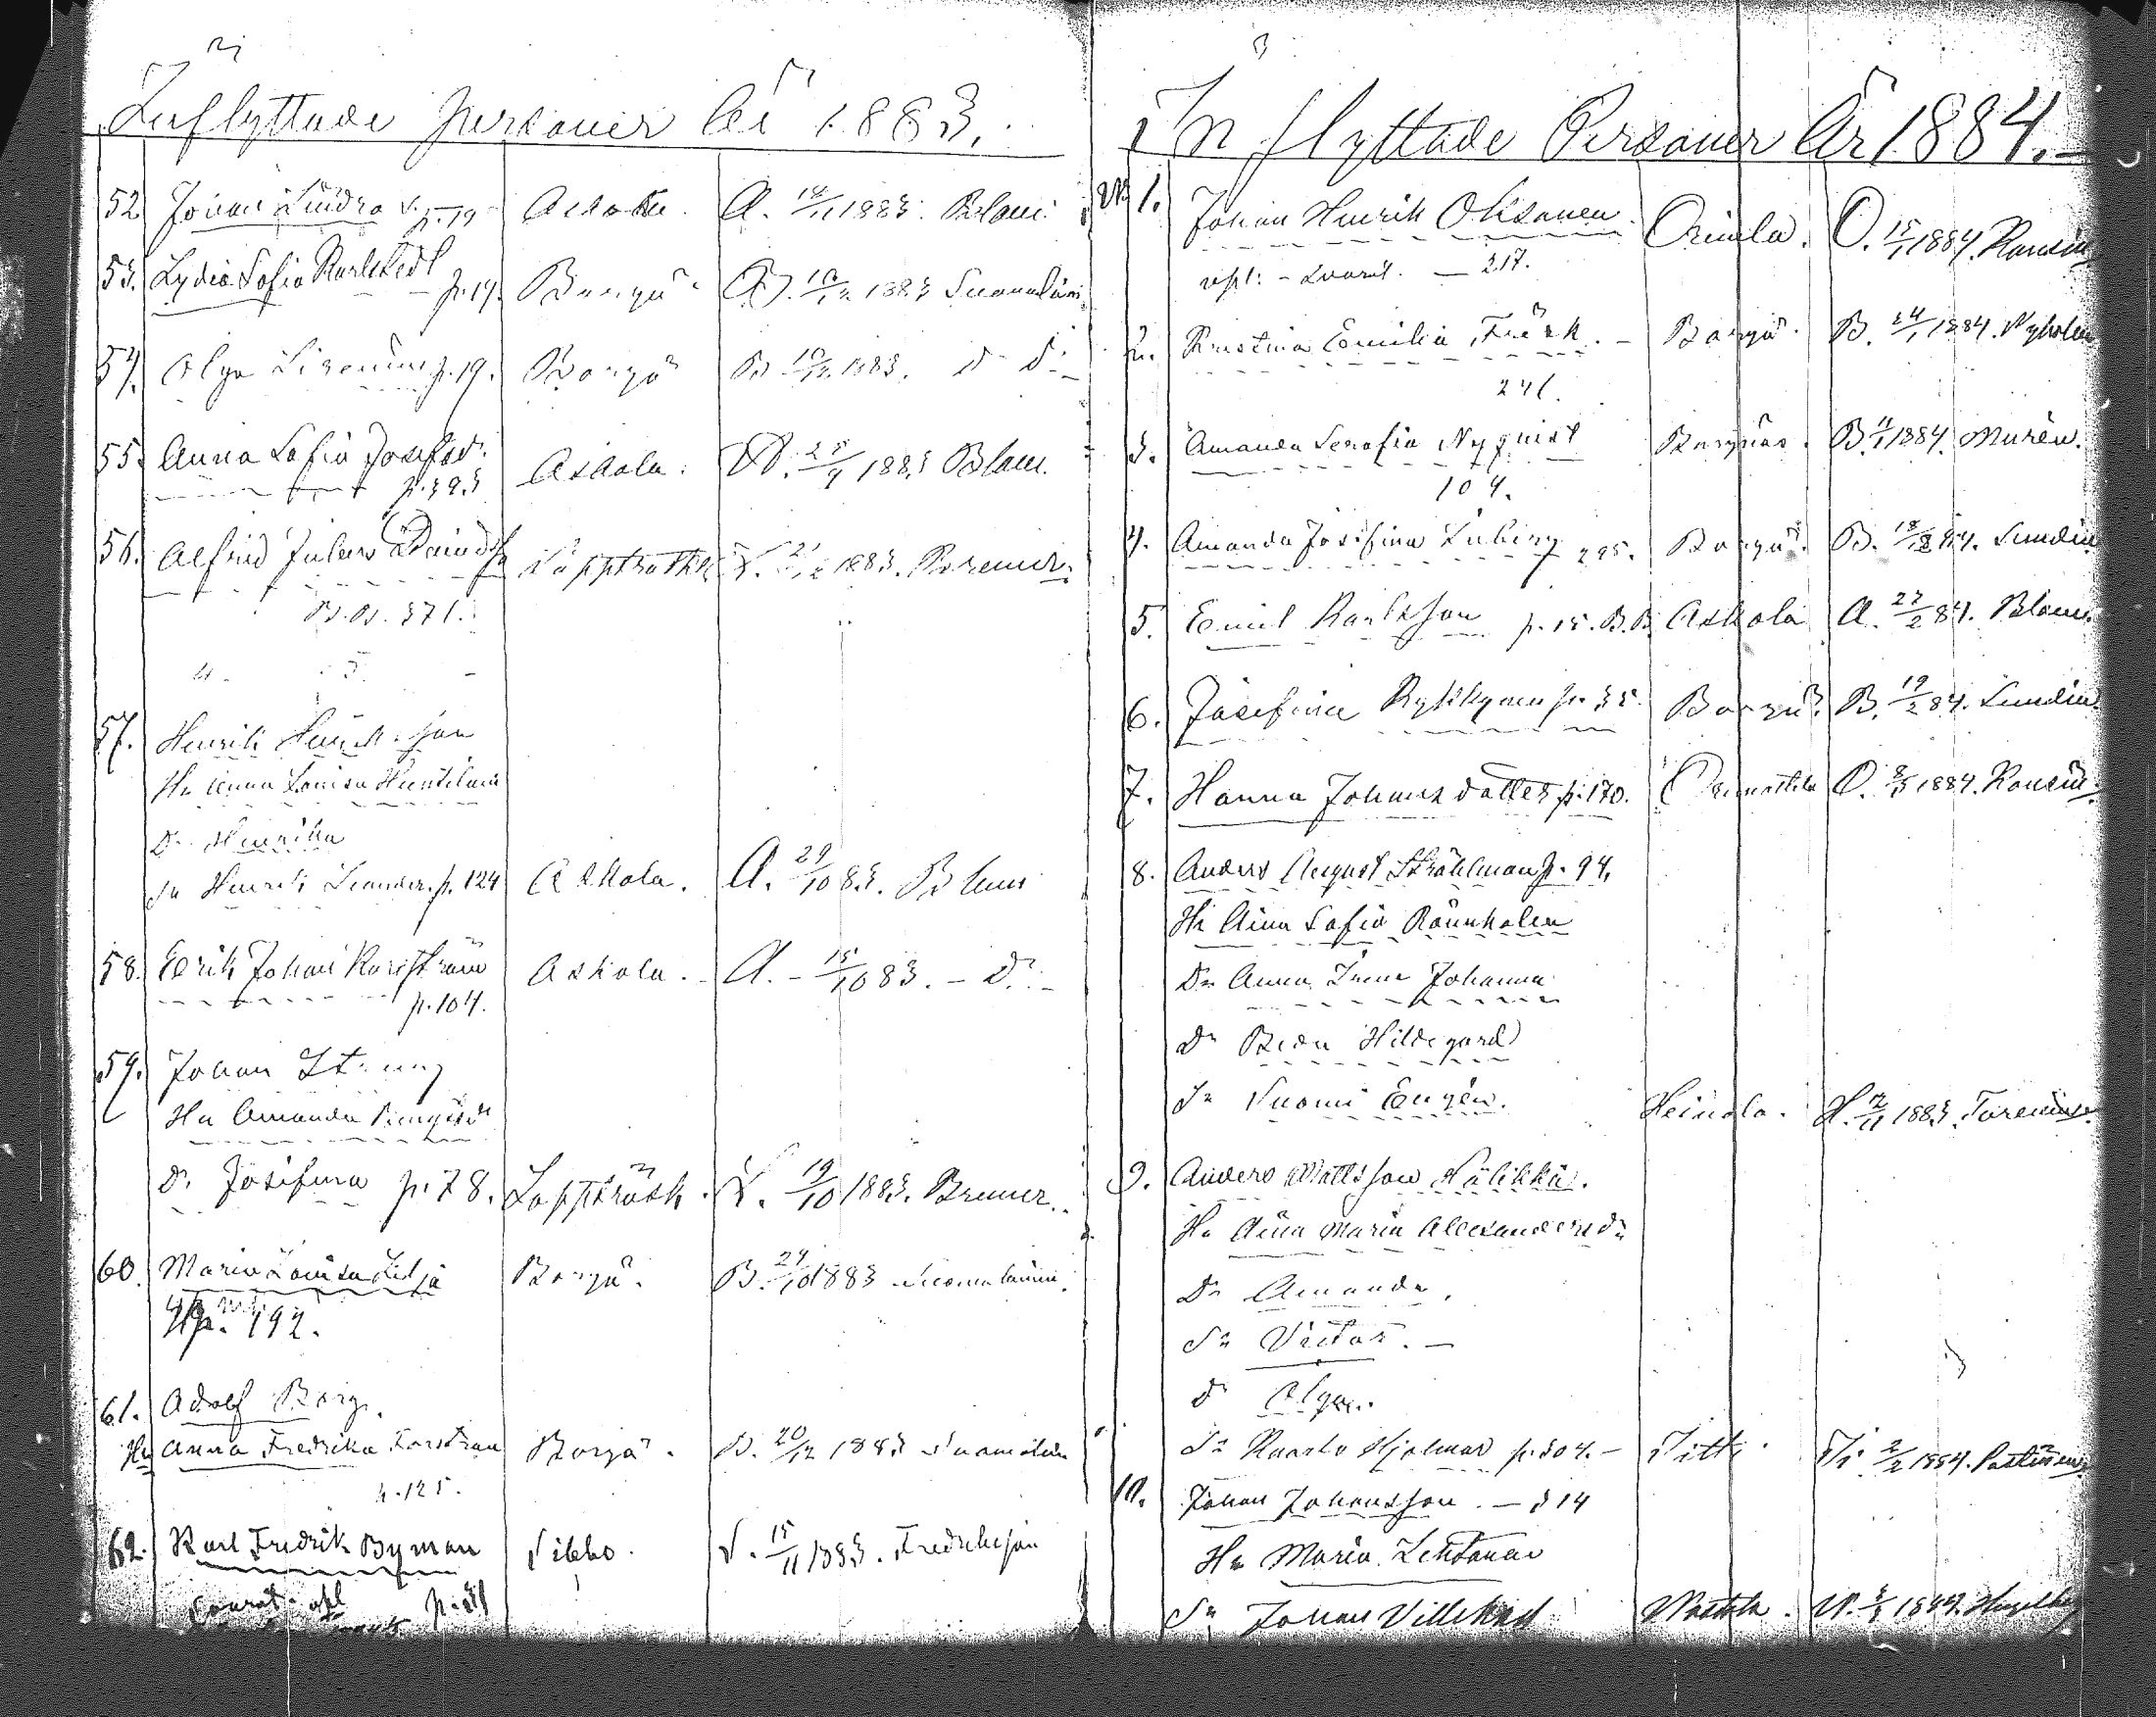 Inflyttade Personer år 1883.
52 Johan Lindro p. 19 Askola. A. 14/11 1883. Blom.
53. Lydia Sofia Karlstedt p. 19. Borgå B. 10/12 1883 Suomalain
54. Olga p. 19. Borgå B 10/12 1883. d:o d:o
55. Anna Sofia Josefsd:r Askola. A. 25/9 1883 Blom.
p. 393
56. Alfred Julius Lappträsk L. 21/12 1883. Bremer.
B.B. 371.
57. Henrik Henriksson
Hu Anna Lovisa
Dr Henrika
Sn Henrik Leander. p. 124 Askola. A. 29/10 83. Blom
58. Erik Johan Karlström Askola. A. - 15/10 83. - D:o
p. 104.
59. Johan
Hu Amanda
Dr Josefina p. 78. Lappträsk. L. 19/10 1883. Bremer.
60. Maria Lovisa Lilja Borgå. B. 24/10 1883 Suomalainen.
p. 192.
61. Adolf Borg.
Hu Anna Fredrika Forström Borgå. B. 20/12 1883 Suomalain
p. 125.
62. Karl Fredrik Byman Sibbo. S. 15/11 1883. Fredriksson
In flyttade Personer År 1884.
N:o 1. Johan Henrik Oksanen. Orimla. O. 15/1 1884. Ronsin
217.
2. Kristina Emilia Fräsk. Borgå. B. 24/1 1884. Nyholm
241.
3. Amanda Serafia Nyquist Borgnäs. B. 11/1 1884. Murén.
104.
4. Amanda Josefina Liberg 295. Borgå. B. 18/2 84. Sundin
5. Emil Karlsson p. 15. B.B. Askola A. 22/2 84. Blom.
6. Josefina Rykkynen p. 35. Borgå. B. 19/2 84. Sundin
7. Hanna Johansdotter p. 170. Orimattila O. 3/3 1884. Ronsin.
8. Anders August Stråhlman p. 94.
Hu Aina Sofia Rönnholm
Dr Anna Irene Johanna
Dr Beda Hildegard
Sn Suomi Eugén. Heinola. H. 2/11 1883. Forenius.
9. Anders Mattsson Hälikkä.
Hu Anna Maria Alexandersd:r
Dr Amanda.
Sn Victor.
Dr Olga.
Sn Kaarlo Hjalmar p. 304. Iitti. Iti. 2/2 1884.
10. Johan Johansson. - 314
Hu Maria Lehtonen
Sn Johan Villehad